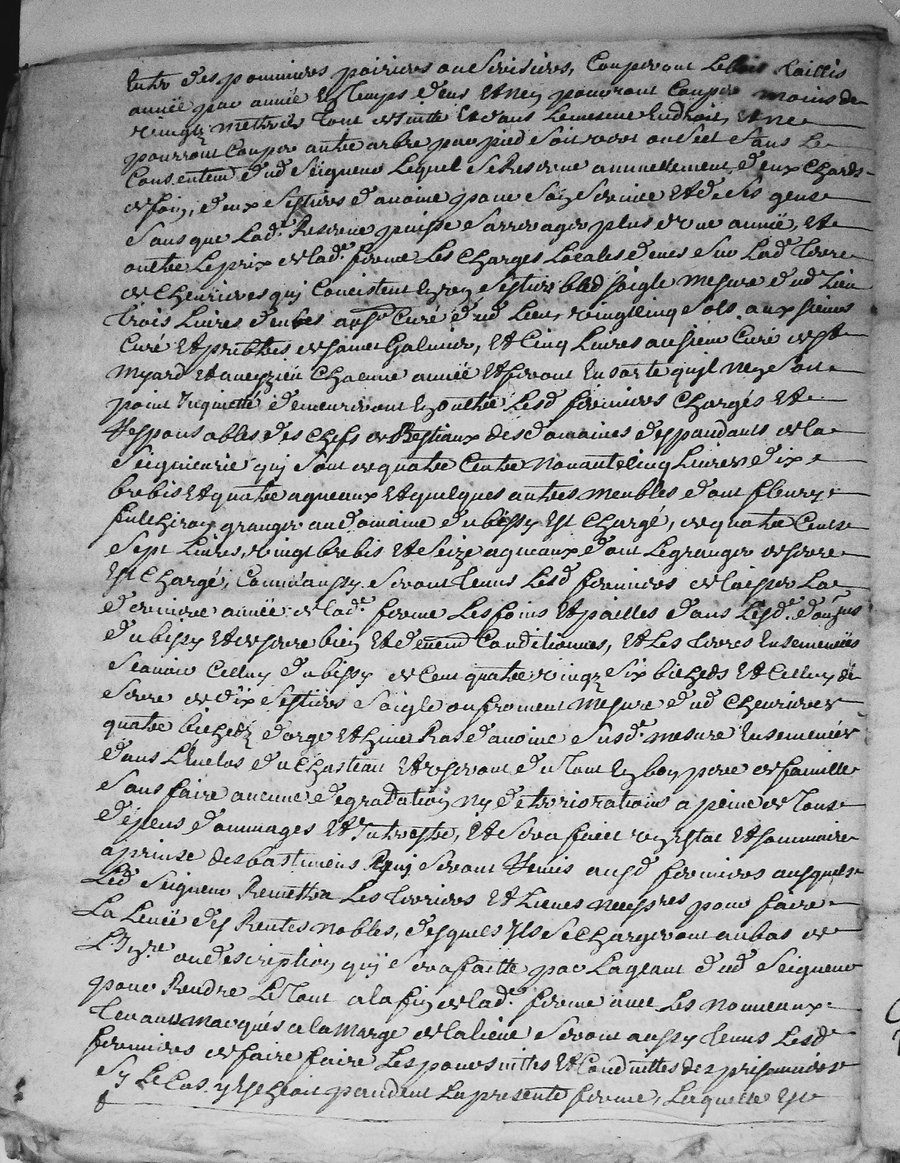 Entre des pommiers poiriers ou Serisiers, Couperont Le bois taillis
année par année En Temps deus Et ney pourront Couper moins de
vingt mettres tout de suitte Et dans Le mesme Endroit, Et ne
pourront Couper autre arbre par pied Soit vert ou Sec Sans Le
Consentem.t dud Seigneur Lequel Se Reserve annuellement deux Chards
de foin, deux Septiers davoine pour Son Service Et de Ses gens
Sans que Lad.e Reserve puisse Sarrerager plus dune année, Et
outre Le prix de lad.e ferme Les Charges Locales deues Sur Lad.e terre
de Chenrieres quy Concistent En Septier bled Soigle mesure dud Lieu
trois Livres deues au S.r Curé dud Lieu, vingt Cinq Sols aux Sieurs
Curé Et prebtres de Saint Galmier, Et Cinq Livres au Sieur Curé de St
Myard Et aveyzieu Chacune année Et feront En sorte quyl ney Soit
point Inquietté demeureront En Outre Lesd fermiers Chargés Et
Responsables des Chefs de Bestiaux des domaines deppandants de la
Seigneurie quy Sont de quatre Cents Nonante Cinq Livres dix
brebis Et quatre agneaux Et quelques autres meubles dont fleury
fulchiron granger au domaine du bessy Est Chargé, de quatre Cents
Sept Livres, vingt brebis Et Seize agneaux dont Le granger de Serre
Est Chargé, Comme aussy Seront tenus Lesd fermiers de laisser La
derniere année de lad.e ferme Les foins Et pailles dans Lesd.
du bessy Et de Serre bien Et deuem.t Conditionnés, Et Les terres Ensemencées
Scavoir Celluy du bessy de Cent quatre vingt Six bicheds Et Celluy de
Serre de dix Septiers Soigle ou froment Mesure dud Chenrieres
quatre bicheds dorge Et huit Ras davoine Susd.e mesure Ensemencés
dans LEnclos du Chasteau Et useront du tout En bon pere de famille
Sans faire aucune degradation ny deteriorations a peine de tous
depens dommages Et Intrests, Et Sera faict un Estat Et Sommaire
a prinse des bastimens quy Seront Remis ausd fermiers ausquels
Led Seigneur Remettra Les terriers Et Lieves necess.res pour faire
La Levée des Rentes nobles, desquels Ils Se Chargeront au bas de
L'Inv.re ou description quy Sera faitte par Lageant dud Seigneur
pour Rendre Le tout a la fin de lad.e ferme avec Les Nouveaux
tenans marqués a la Marge de la lieve Seront aussy tenus Lesd
fermiers de faire faire Les poursuittes Et Conduittes des prisonniers
Sy Le Cas y Escheoit pendent La presente ferme, Laquelle Est